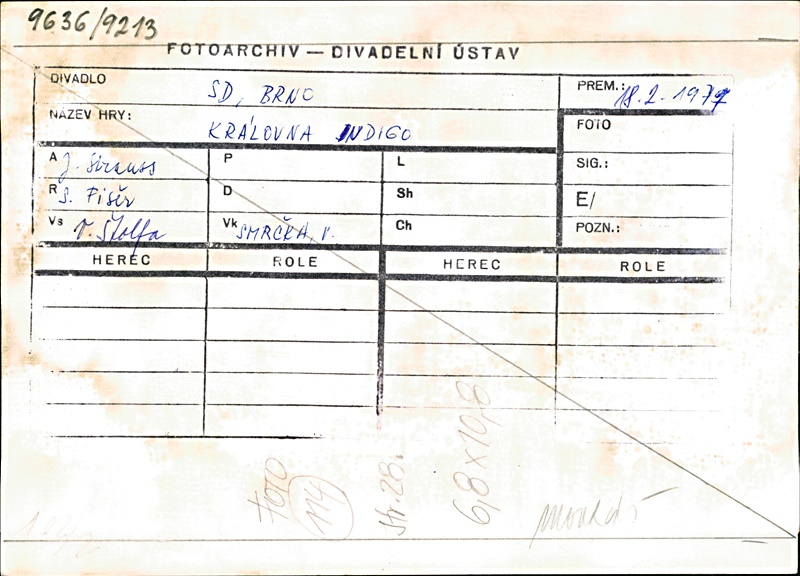 9636/9213
FOTOARCHIV — DIVADELNÍ ÚSTAV
DIVADLO SD, BRNO PREM.: 18.2.1977
NÁZEV HRY: KRÁLOVNA INDIGO FOTO
A J. Strauss P L SIG.:
R S. Fišer D Sh E/
Vs V. Štolfa Vk SMRČKA, V. Ch POZN.:
HEREC ROLE HEREC ROLE
foto
114
str. 28.
6,8 x 10,8